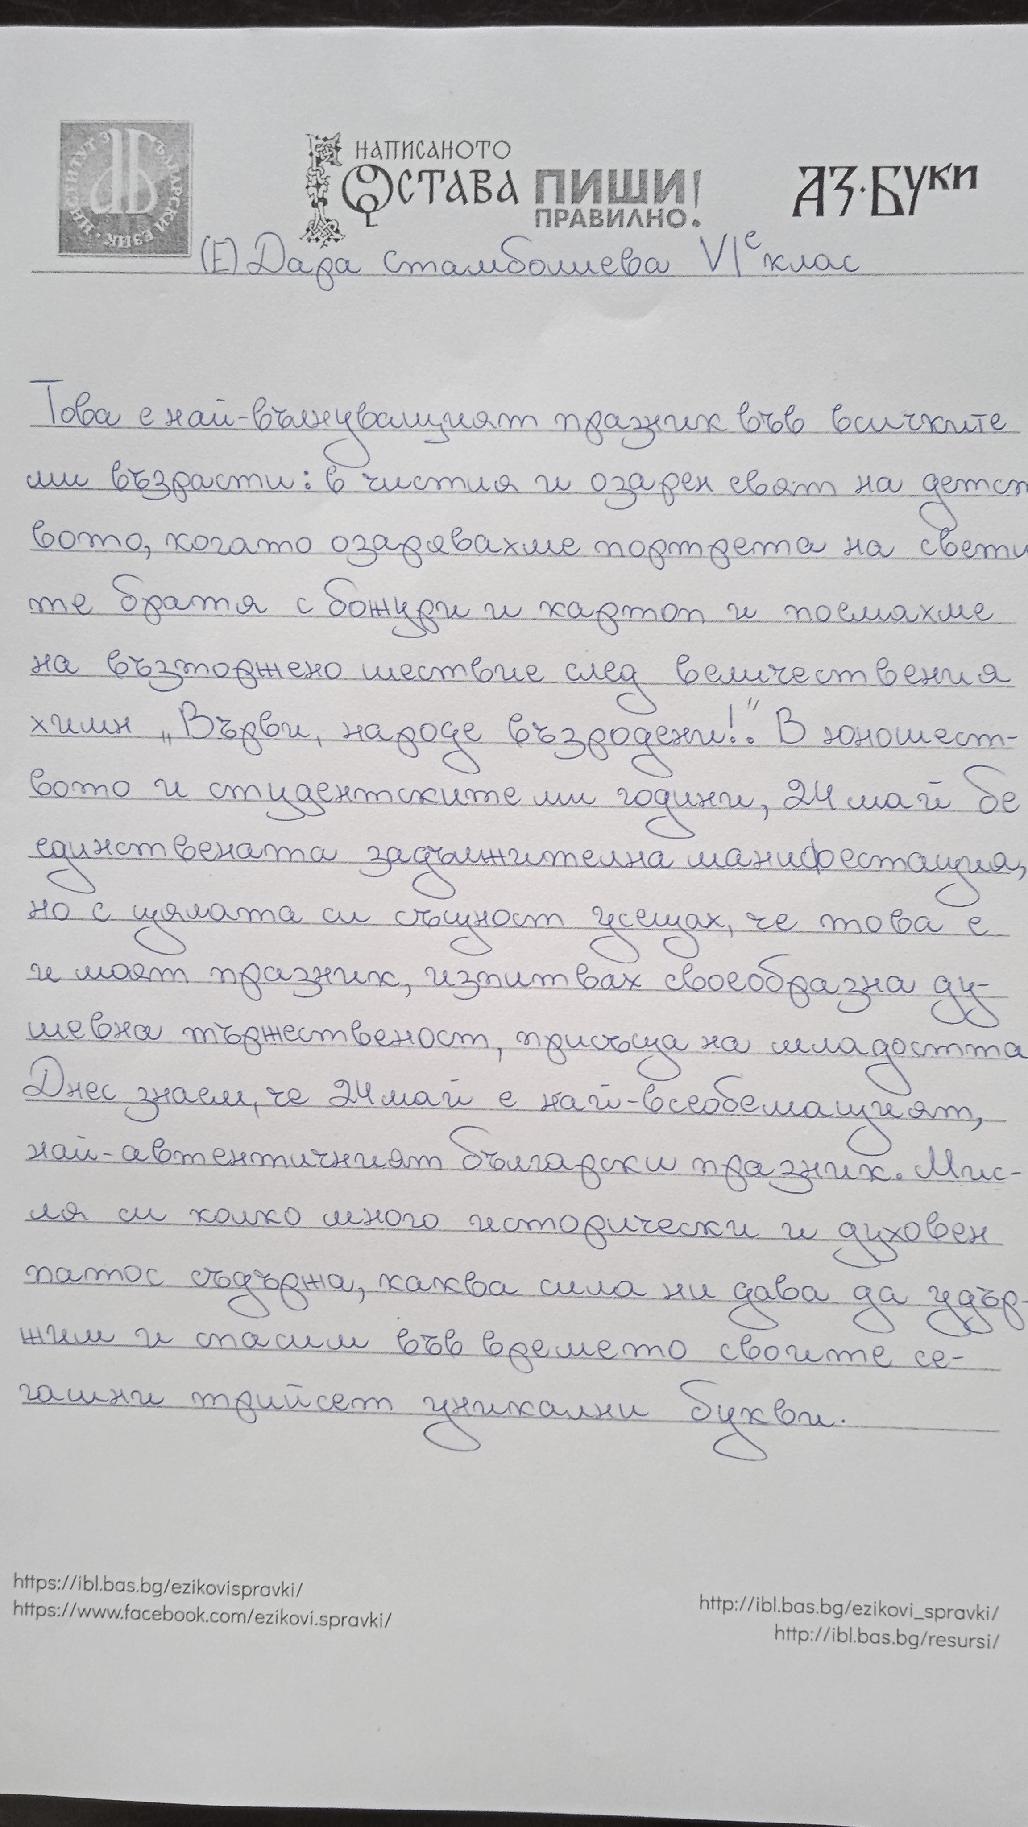 ИНСТИТУТ ЗА БЪЛГАРСКИ ЕЗИК
НАПИСАНОТО
ОСТАВА ПИШИ!
ПРАВИЛНО.
АЗ·БУКИ
(Е) Дара Стамболиева VIе клас
Това е най-вълнуващият празник във всичките
ми възрасти: в чистия и озарен свят на детст
вото, когато озарявахме портрета на свети
те братя с божури и картоп и поемахме
на възторжено шествие след величествения
химн „Върви, народе възродени!". В юношест-
вото и студентските ми години, 24 май бе
единствената задължителна манифестация,
но с цялата си същност усещах, че това е
и моят празник, изпитвах своеобразна ду-
шевна тържественост, присъща на младостта
Днес знаем, че 24 май е най-всеобемащият,
най-автентичният български празник. Мис-
ля си колко много исторически и духовен
патос съдържа, каква сила ни дава да удър-
жим и спасим във времето своите се-
гашни трийсет уникални букви.
https://ibl.bas.bg/ezikovispravki/
https://www.facebook.com/ezikovi.spravki/
http://ibl.bas.bg/ezikovi_spravki/
http://ibl.bas.bg/resursi/